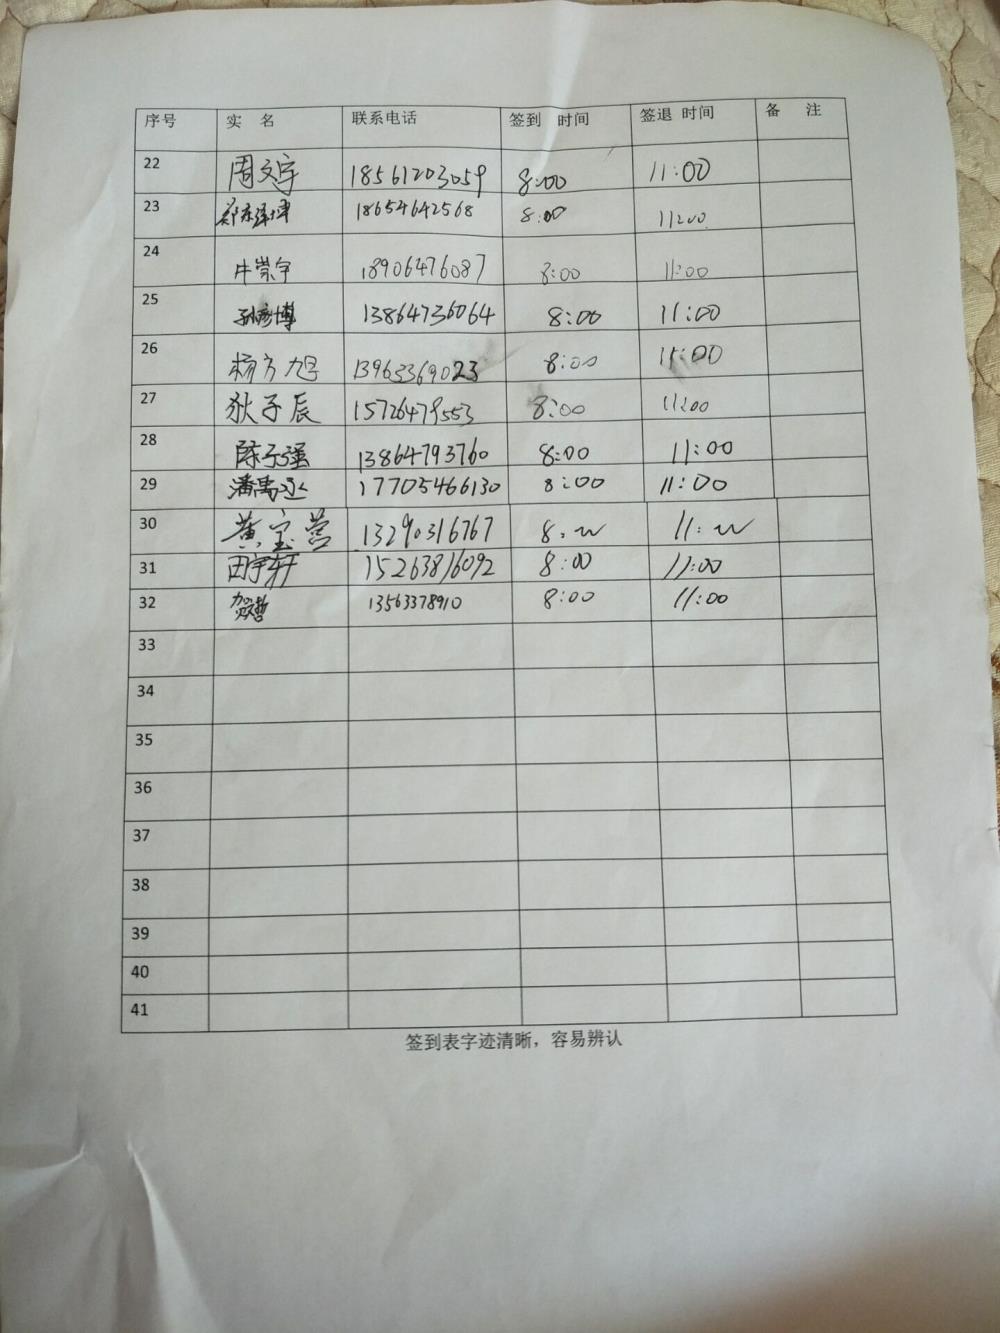 序号 实 名 联系电话 签到 时间 签退 时间 备 注
22 周文宇 18561203059 8:00 11:00
23 18654642568 8:00 11:00
24 牛崇宇 18906476087 8:00 11:00
25 孙彦博 13864736064 8:00 11:00
26 杨方旭 13963369023 8:00 11:00
27 狄子辰 15726479553 8:00 11:00
28 陈子强 13864793760 8:00 11:00
29 潘禹丞 17705466130 8:00 11:00
30 黄宝营 13290316767 8:00 11:00
31 田宇轩 15263816092 8:00 11:00
32 13563378910 8:00 11:00
33
34
35
36
37
38
39
40
41
签到表字迹清晰，容易辨认